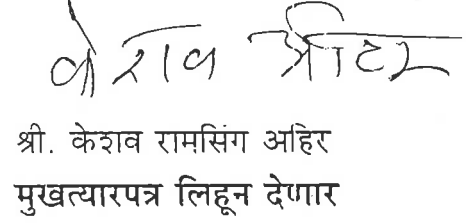 केशव अहिर
श्री. केशव रामसिंग अहिर
मुखत्यारपत्र लिहून देणार